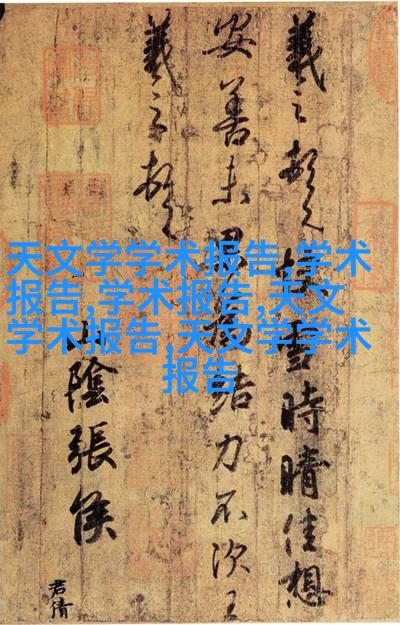 天文学学术报告,学术
报告,学术报告,天文
学术报告,天文学学术
报告
羲之頓首快雪時晴佳想
安善未果為結力不次王
羲之頓首
山陰張侯
君倩